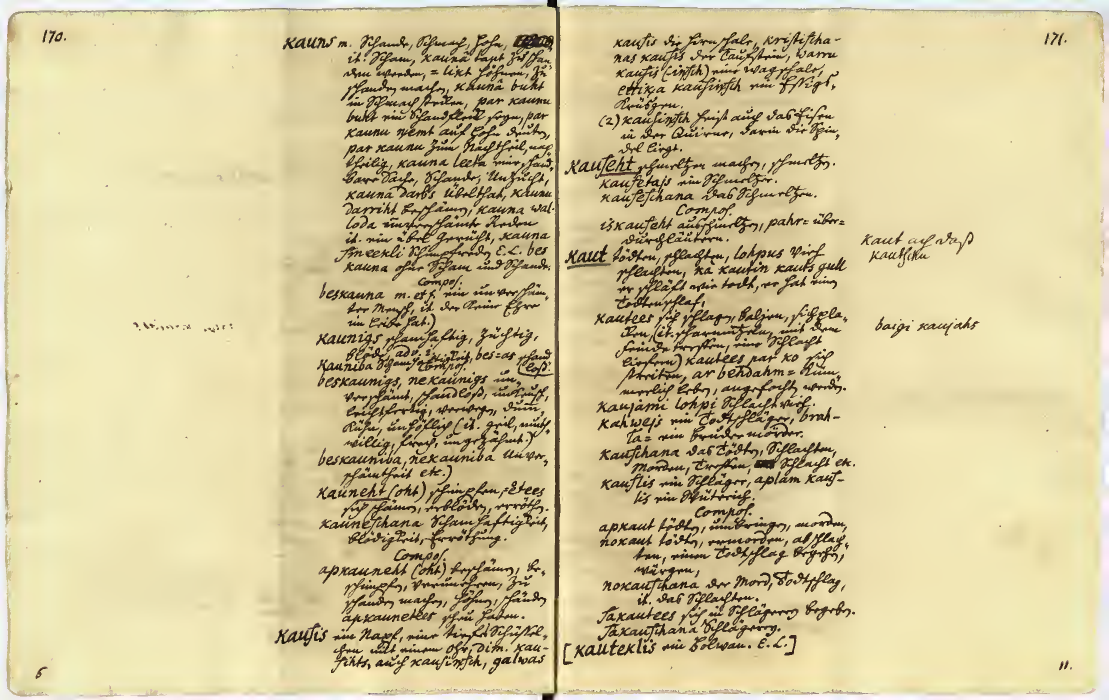 170.
kauns m. Schande, Schmach, Hohn,
it. Scham, kaunâ tapt zu schan-
den werden, = likt höhnen, zu
schanden machen, kaunâ buht
in Schmach stecken, par kaunu
buht ein Schandfleck seyn, par
kaunu nemt auf Hohn deuten,
par kaunu zum Nachtheil, nach-
theilig, kauna leeta eine schand-
bare Sache, Schande, Unzucht,
kauna darbs Übelthat, kaunu
darriht beschämen, kauna wal-
loda unverschämte Reden
it. ein übel Gerücht, kauna
smeekli Schimpfreden E. L. bes
kauna ohne Scham und Schande.
Compos.
beskauna m. et f. ein unverschäm-
ter Mensch, it. der keine Ehre
im Leibe hat.)
kaunigs schamhaftig, züchtig,
blöde, adv. i.
kauniba Schamhaftigkeit, bes=as schand
Compos. (loß.
beskaunigs, nekaunigs un-
verschämt, schandloß, unkeusch,
leichtfertig, verwegen, dumm,
kühn, unhöflich (it. geil, muth-
willig, frech, ungezähmt.)
beskauniba, nekauniba Unver-
schämtheit etc.)
kauneht (oht) schimpfen, =etees
sich schämen, erblöden, erröthen.
kauneschana Schamhaftigkeit,
Blödigkeit, Erröthung.
Compos.
apkauneht (oht) beschämen, be-
schimpfen, verunehren, zu
schanden machen, höhnen, schänden
apkaunetees scheu haben.
kausis ein Napf, eine tiefe Schüssel-
chen mit einem Ohr, dim. kau-
sihts, auch kausinsch, galwas
6
171.
kausis die Hirnschale, kristischa-
nas kausis der Taufstein, warru
kausis (insch) eine Wagschale,
ettika kausinsch ein Essigs-
Krüsgen.
(2) kausinsch heist auch das Eisen
in der Quirne, darin die Spin-
del liegt.
kauseht schmeltzen machen, schmeltzen.
kausetajs ein Schmeltzer.
kauseschana das Schmeltzen.
Compos.
iskauseht ausschmeltzen, pahr= über=
durchläutern.
kaut tödten, schlachten, lohpus Vieh
schlachten, kà kautin kauts gull
er schläft wie todt, er hat einen
Todtenschlaf,
kautees sich schlagen, balgen, sich pla-
cken, (it. scharmützeln, mit dem
Feinde treffen, eine Schlacht
liefern) kautees par ko sich
streiten, ar behdahm = küm-
merlich leben, angefochten werden.
kaujami lohpi Schlachtvieh.
kahwejs ein Todtschläger, brah-
ta= ein Brudermörder.
kauschana das Tödten, Schlachten,
Morden, Treffen, Schlacht etc.
kauslis ein Schläger, aplam kaus-
lis ein Wüterich.
Compos.
apkaut tödten, umbringen, morden,
nokaut tödten, ermorden, abschlach-
ten, einen Todtschlag begehen,
würgen,
nokauschana der Mord, Todtschlag,
it. das Schlachten.
sakautees sich in Schlägerey begeben.
sakauschana Schlägerey.
[kauteklis ein Bolwan. E. L.]
kaut ach daß
kautschu
baigi kaujahs
11.